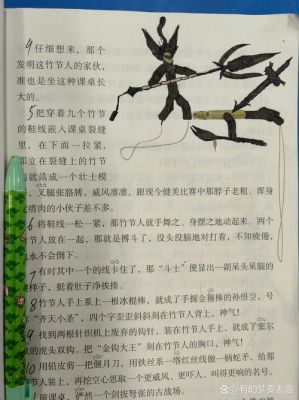 4仔细想来，那个
发明这竹节人的家伙，
准也是坐这种课桌长
大的。
5把穿着九个竹节
的鞋线嵌入课桌裂缝
里，在下面一拉紧，
那立在裂缝上的竹节
就站成一个壮士模
叉腿张胳膊，威风凛凛，跟现今健美比赛中那脖子老粗、浑身
疙瘩肉的小伙子差不多。
6将鞋线一松一紧，那竹节人就手舞之、身摆之地动起来。两个
竹节人放在一起，那就是搏斗了，没头没脑地对打着，不知疲倦，
永不会倒下。
7有时其中一个的线卡住了，那“斗士”便显出一副呆头呆脑的
傻样子，挺着肚子净挨揍。
8竹节人手上系上一根冰棍棒，就成了手握金箍棒的孙悟空，号
“齐天小圣”，四个字歪歪斜斜刻在竹背上，神气！
9找到两根针织机上废弃的钩针，装在竹节人手上，就成了窦尔
敦的虎头双钩。把“金钩大王”刻在竹节人的胸口，神气！
10用铅皮剪一把偃月刀，用铁丝系一绺红丝线做一柄蛇矛，给那
竹节人装上，再挖空心思取一个更威风、更吓人、叫得更响的名号。
破课桌，俨然一个叱咤风云的古战场。
@有的梦要去追